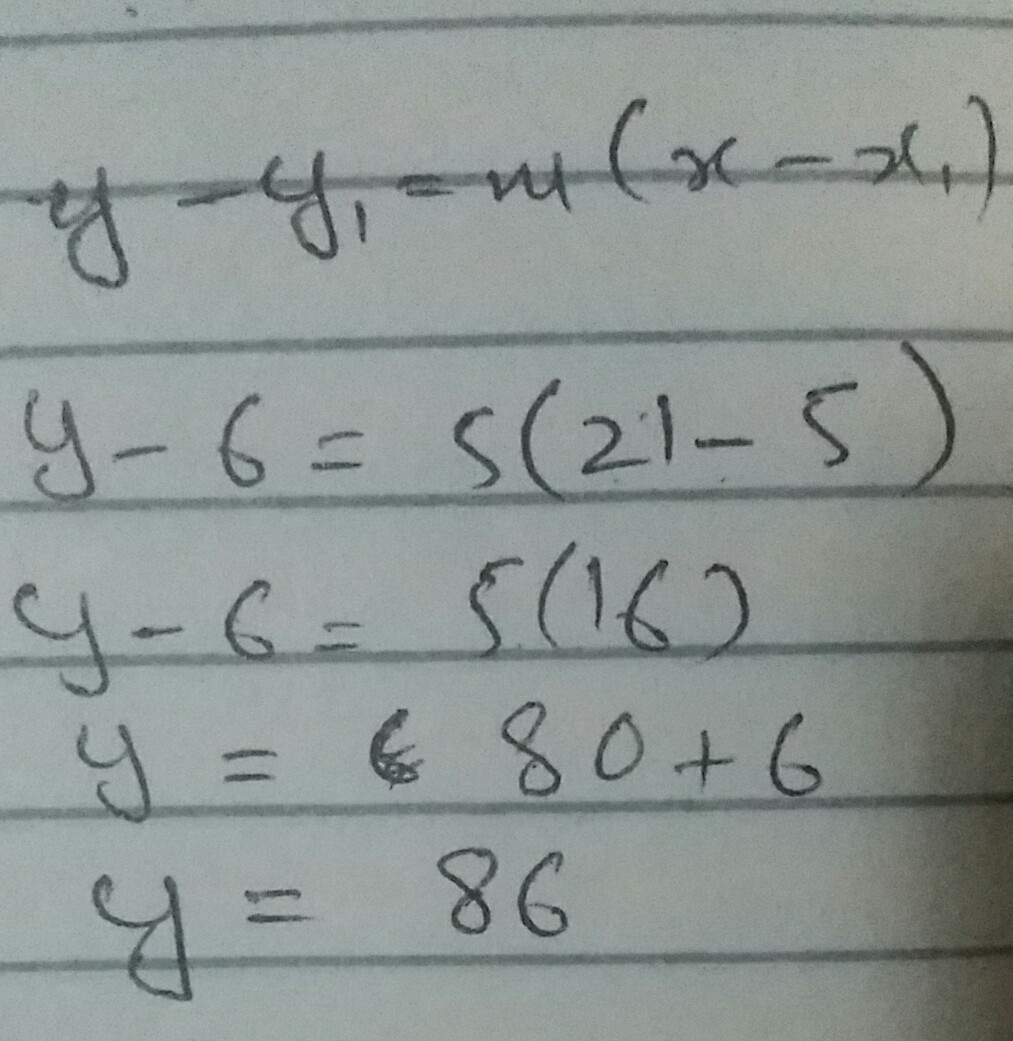 y - y₁ = m(x - x₁)
y - 6 = 5(21 - 5)
y - 6 = 5(16)
y = 80 + 6
y = 86